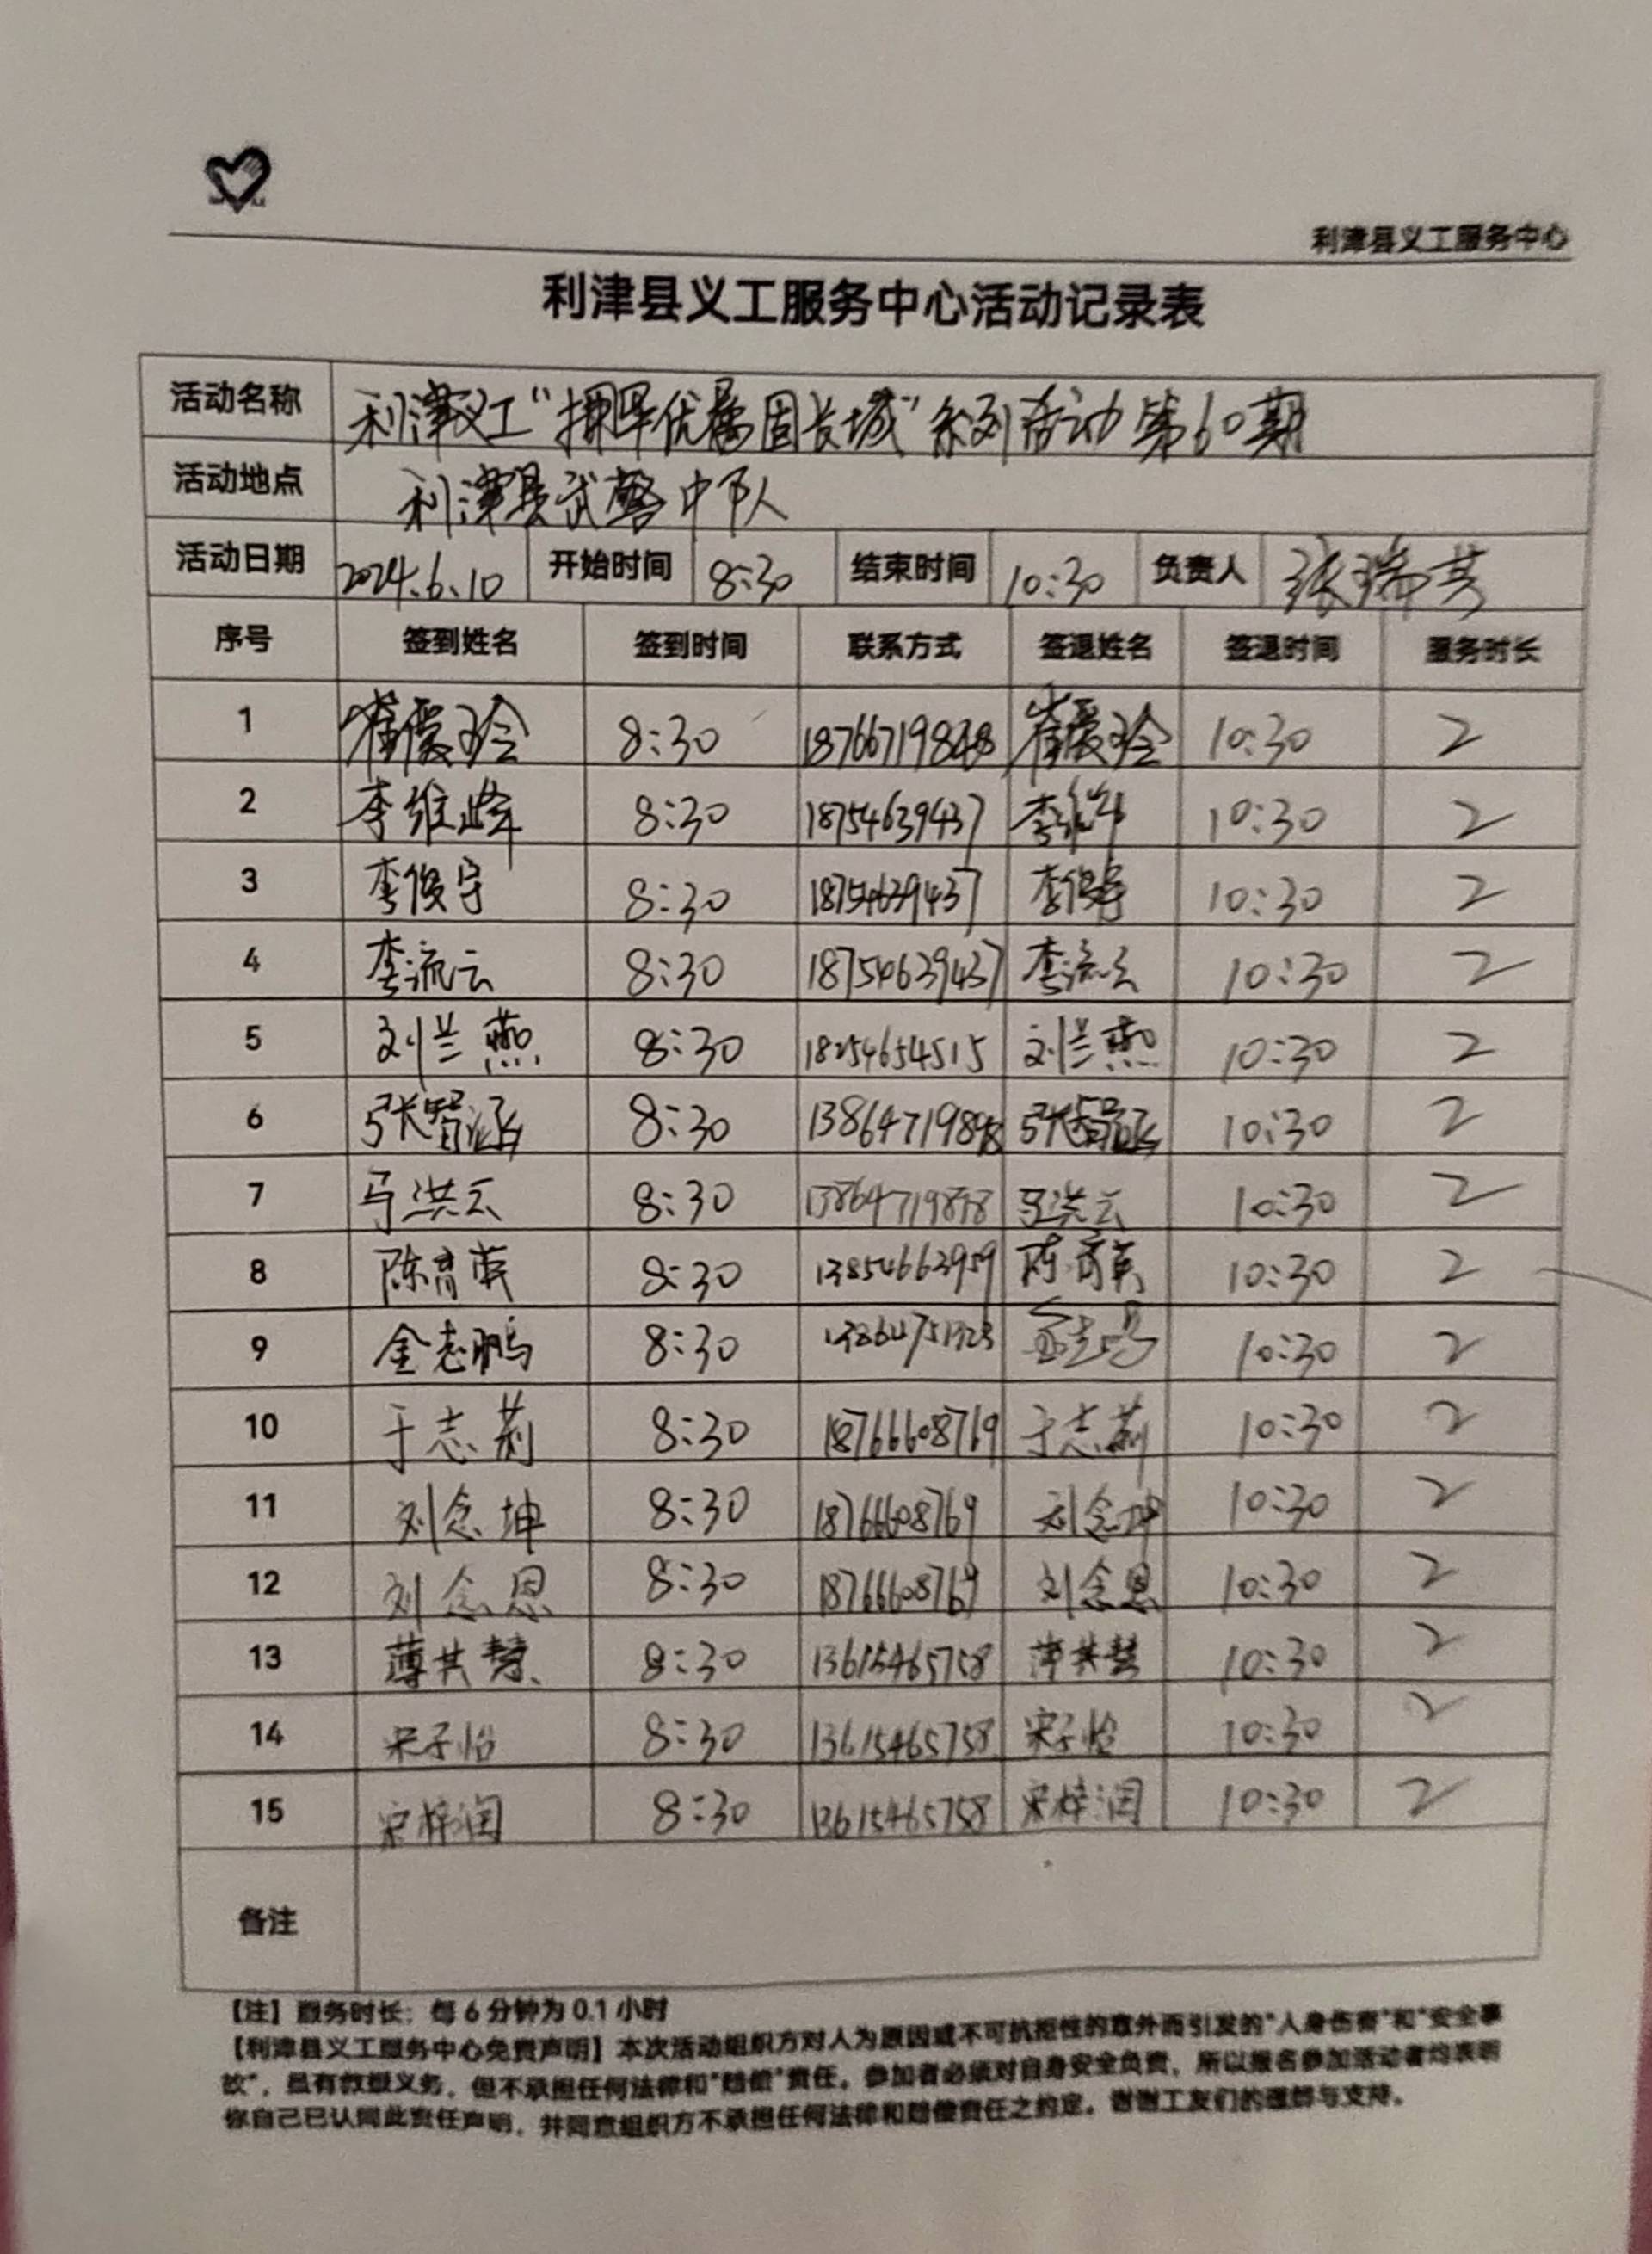 利津县义工服务中心
利津县义工服务中心活动记录表
活动名称 利津义工“拥军优属固长城”系列活动第60期
活动地点 利津县武警中队
活动日期 2024.6.10 开始时间 8:30 结束时间 10:30 负责人 张瑞芳
序号 签到姓名 签到时间 联系方式 签退姓名 签退时间 服务时长
1 崔爱玲 8:30 崔爱玲 10:30 2
2 李维峰 8:30 18754639437 李维峰 10:30 2
3 李俊宇 8:30 18754639437 李俊宇 10:30 2
4 李流云 8:30 18754639437 李流云 10:30 2
5 刘兰燕 8:30 18254654515 刘兰燕 10:30 2
6 张智涵 8:30 13864719898 张智涵 10:30 2
7 马洪云 8:30 13864719898 马洪云 10:30 2
8 陈育英 8:30 13854663959 陈育英 10:30 2
9 金志鹏 8:30 10:30 2
10 于志莉 8:30 18766608769 于志莉 10:30 2
11 刘念坤 8:30 18766608769 刘念坤 10:30 2
12 刘念恩 8:30 18766608769 刘念恩 10:30 2
13 薄其慧 8:30 13615465758 薄其慧 10:30 2
14 宋子怡 8:30 13615465758 宋子怡 10:30 2
15 宋梓润 8:30 13615465758 宋梓润 10:30 2
备注
【注】服务时长：每6分钟为0.1小时
【利津县义工服务中心免责声明】本次活动组织方对人为原因或不可抗拒性的意外而引发的“人身伤害”和“安全事
故”，虽有救援义务，但不承担任何法律和“赔偿”责任。参加者必须对自身安全负责，所以报名参加活动者均表明
你自己已认同此责任声明，并同意组织方不承担任何法律和赔偿责任之约定。谢谢工友们的理解与支持。